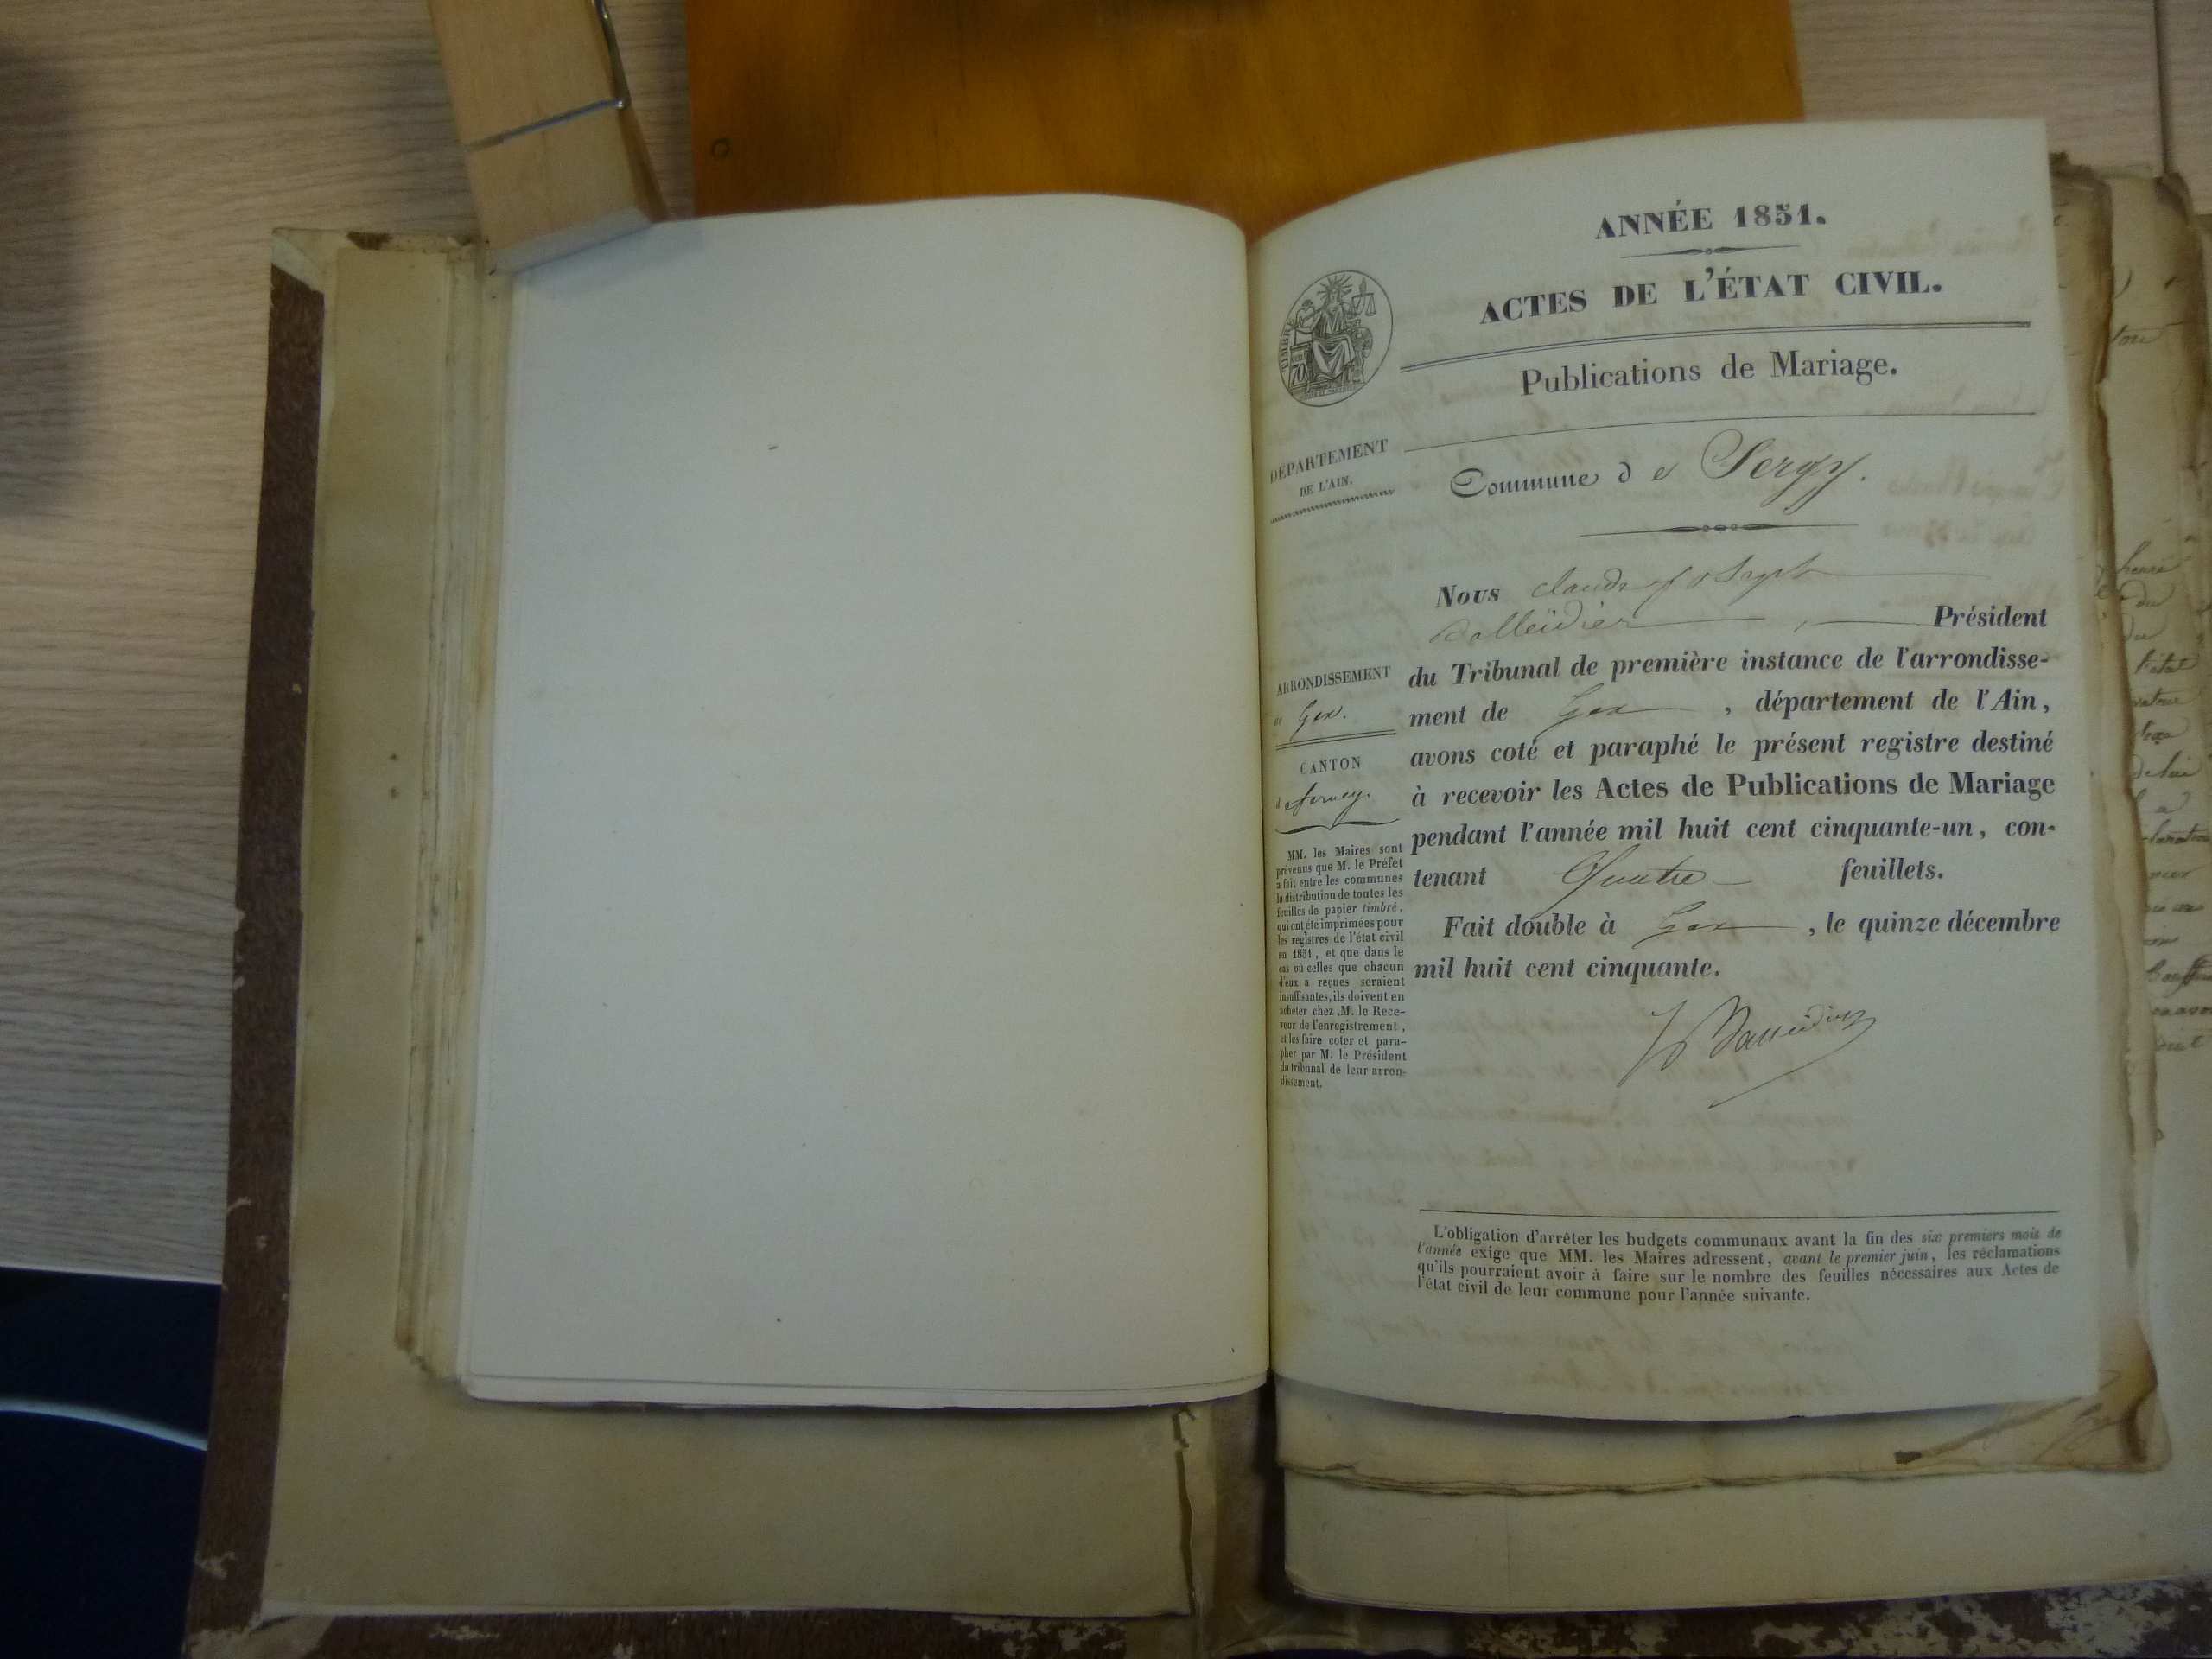 ANNÉE 1851.
ACTES DE L'ÉTAT CIVIL.
TIMBRE
70
Publications de Mariage.
DÉPARTEMENT
DE L'AIN.
Commune de Sergy.
Nous Claude Joseph
Balleidier, Président
du Tribunal de première instance de l'arrondisse-
ment de Gex, département de l'Ain,
avons coté et paraphé le présent registre destiné
à recevoir les Actes de Publications de Mariage
pendant l'année mil huit cent cinquante-un, con-
tenant Quatre feuillets.
Fait double à Gex, le quinze décembre
mil huit cent cinquante.
ARRONDISSEMENT
de Gex.
CANTON
de ferney.
MM. les Maires sont
prévenus que M. le Préfet
a fait entre les communes
la distribution de toutes les
feuilles de papier timbré,
qui ont été imprimées pour
les registres de l'état civil
en 1851, et que dans le
cas où celles que chacun
d'eux a reçues seraient
insuffisantes, ils doivent en
acheter chez M. le Rece-
veur de l'enregistrement,
et les faire coter et para-
pher par M. le Président
du tribunal de leur arron-
dissement.
L'obligation d'arrêter les budgets communaux avant la fin des six premiers mois de
l'année exige que MM. les Maires adressent, avant le premier juin, les réclamations
qu'ils pourraient avoir à faire sur le nombre des feuilles nécessaires aux Actes de
l'état civil de leur commune pour l'année suivante.